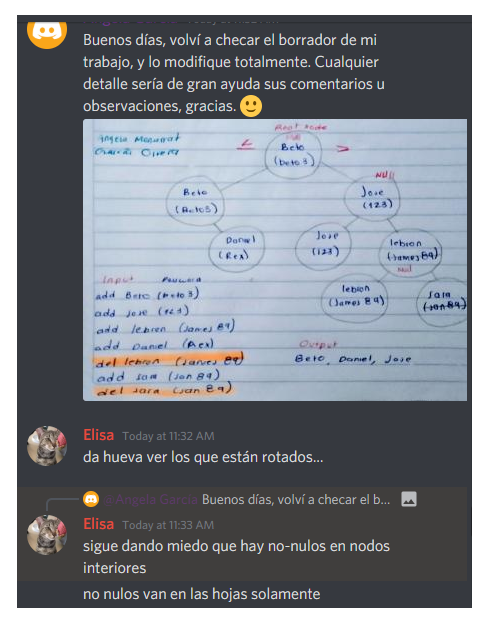 Buenos días, volví a checar el borrador de mi
trabajo, y lo modifique totalmente. Cualquier
detalle sería de gran ayuda sus comentarios u
observaciones, gracias.
Root node
Beto
(beto3)
NUll
Beto
(Beto3)
Jose
(123)
Daniel
(Rex)
Jose
(123)
lebron
(James 89)
Null
lebron
(James 89)
Sara
Input Password
add Beto (beto3)
add Jose (123)
add lebron (James 89)
add Daniel (Rex)
del lebron (James 89)
add sara (Jan 89)
del sara (Jan 89)
Output
Beto, Daniel, Jose
Elisa Today at 11:32 AM
da hueva ver los que están rotados...
@Angela García Buenos días, volví a checar el b...
Elisa Today at 11:33 AM
sigue dando miedo que hay no-nulos en nodos
interiores
no nulos van en las hojas solamente